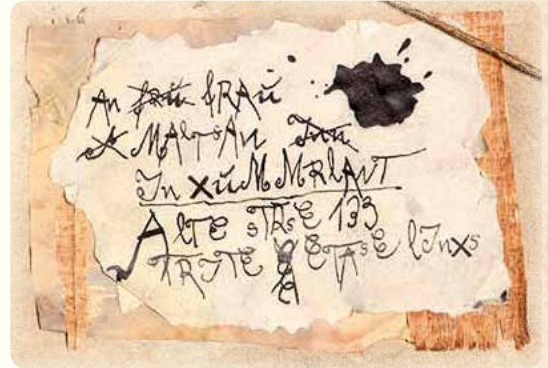 An fRAŭ
MAlTSAN
In XŭMMRlANT
AlTE STRSE 133
TRITE ETASE lInXs